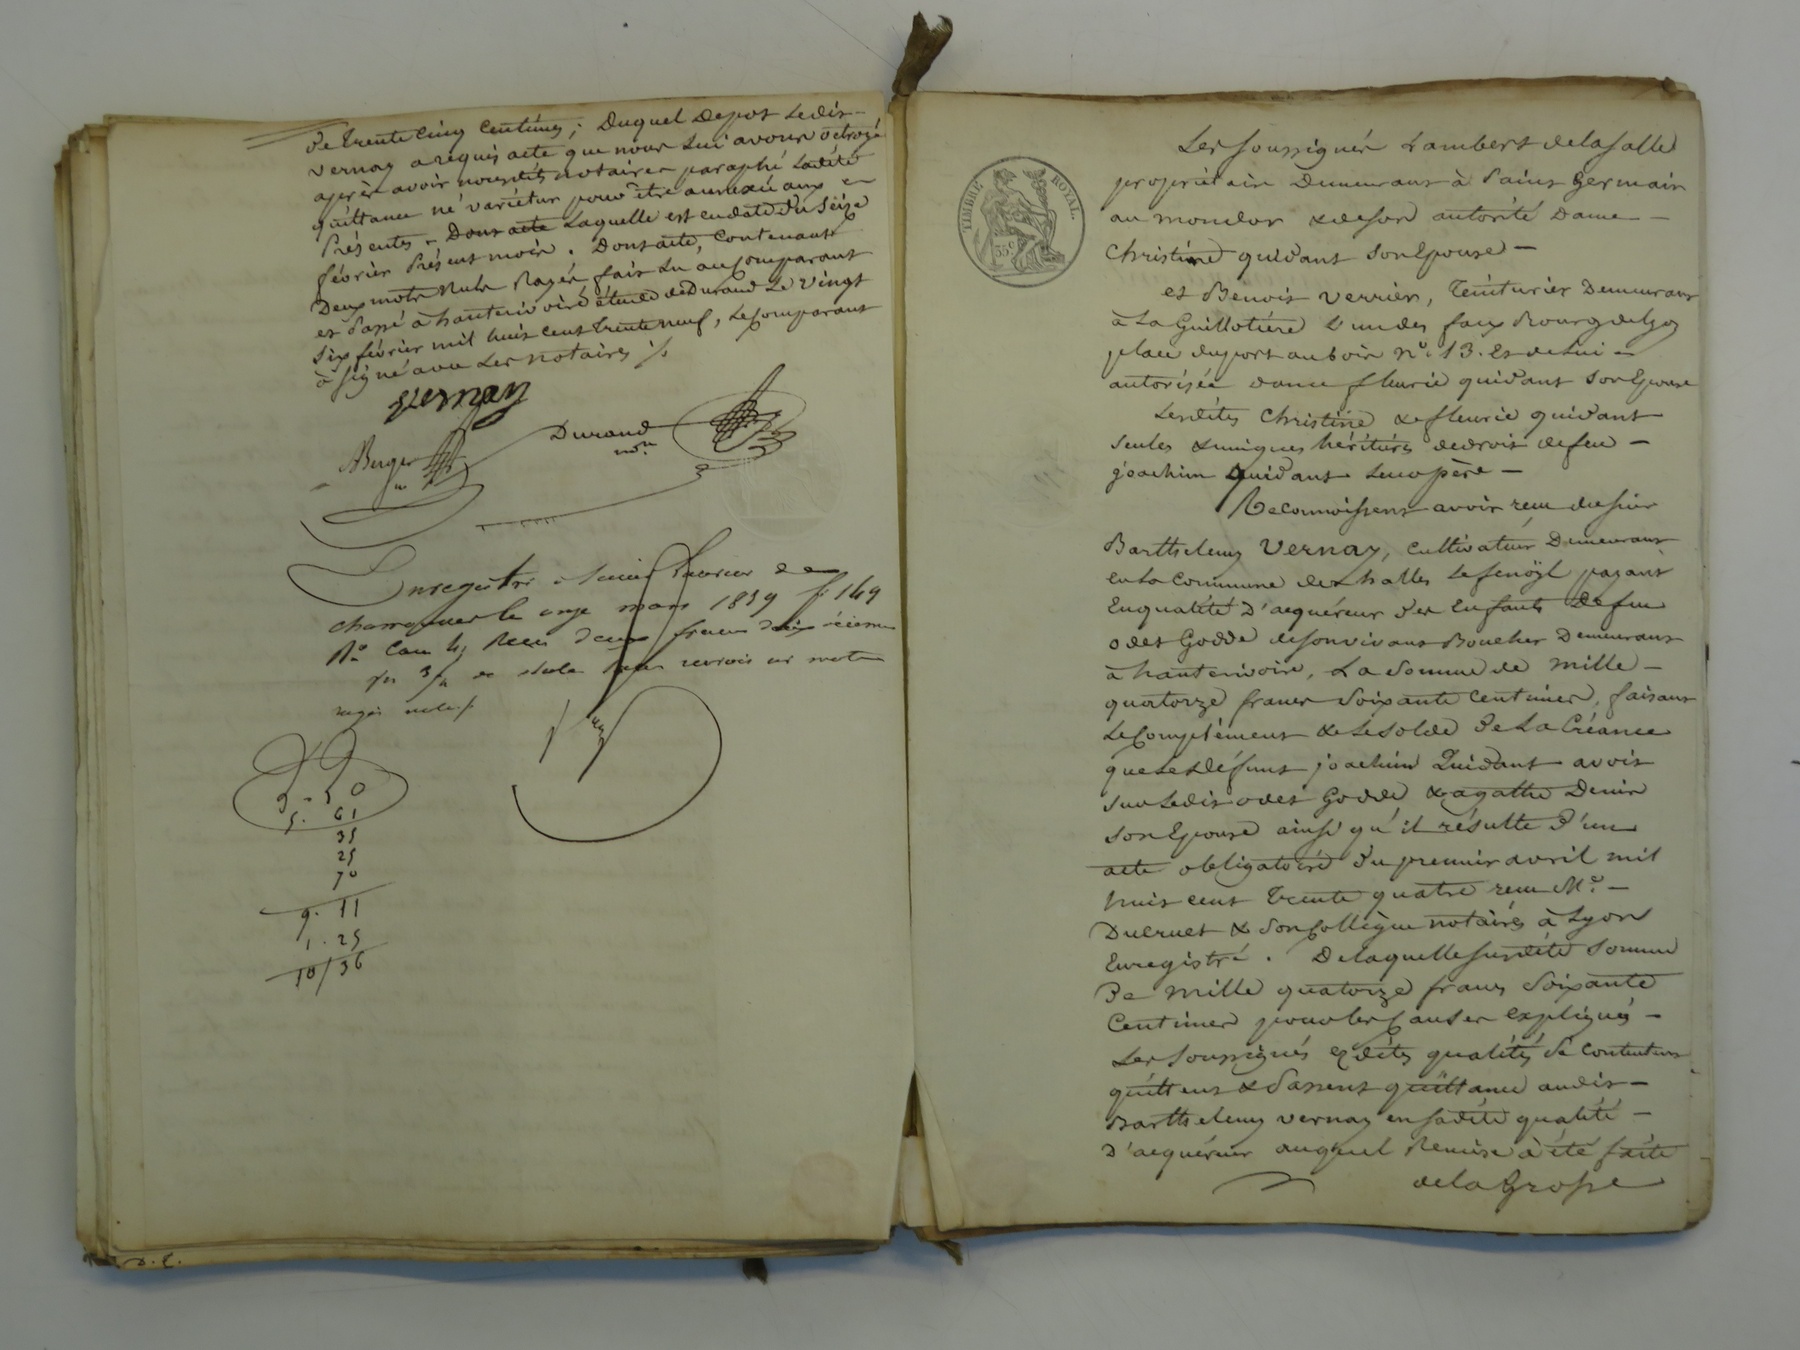 De trente cinq centimes; Duquel depot Ledit
vernay a requis acte que nous Lui avons octroyé
après avoir nousdits notaires paraphé Ladite
quittance né varietur pour être annexée aux
Présentes. Dont acte Laquelle est en date du Seize
février Présent mois. Dont acte, Contenant
Deux mots Nuls Rayés, fait Lu au Comparant
et Passé à hauterivoire étude de Durand Le vingt
Six février mil huit cent trente neuf, Le Comparant
à signé avec Les notaires ./.
Vernay
Durand
nre.
Berger
Enregistré à Saint Laurent de
chamousset le onze mars 1839 fo 149
Ro Case 4, Reçu deux francs dixième
renvois ni mots
rayés nuls
61
35
25
70
9. 11
1. 25
10/36
D. L.
TIMBRE ROYAL.
35c
Les Soussignés Lambert delasalle
propriétaire Demeurant à Saint Germain
au montdor & de son autorité Dame
Christine quidant Son Epouse
et Benoit verrier, Teinturier Demeurant
à La Guillotière L'un des faux Bourg de Lyon
place du port au bois no. 13. et de Lui
autorisée dame fleurie quidant Son Epouse
Lesdites Christine & fleurie quidant
Seules & uniques héritières de droit de feu
joachim quidant Leur père
Reconnoissent avoir reçu du sieur
Barthelemy Vernay, Cultivateur Demeurant
en La Commune des halles Le fenoyl payant
En qualité D'acquéreur des Enfants De feu
odet Godde de son vivant Boucher Demeurant
à hauterivoire, La Somme de mille
quatorze francs Soixante Centimes, faisant
Le Complément & Le Solde De La Créance
que Ledéfunt joachim Quidant avoit
Sur Ledit odet Godde & agathe Denis
Son Epouse ainsi qu'il résulte D'un
acte obligatoire du premier avril mil
huit cent Trente quatre reçu Me.
Ducruet & Son Collègue notaires à Lyon
Enregistré. De laquelle susdite Somme
De mille quatorze francs Soixante
Centimes pour les Causes Expliquées
Les Soussignés esdites qualités Se Contentent
quittent & Passent quittance audit
Barthelemy vernay en sadite qualité
D'acquéreur auquel Remise à été faite
de la Grosse